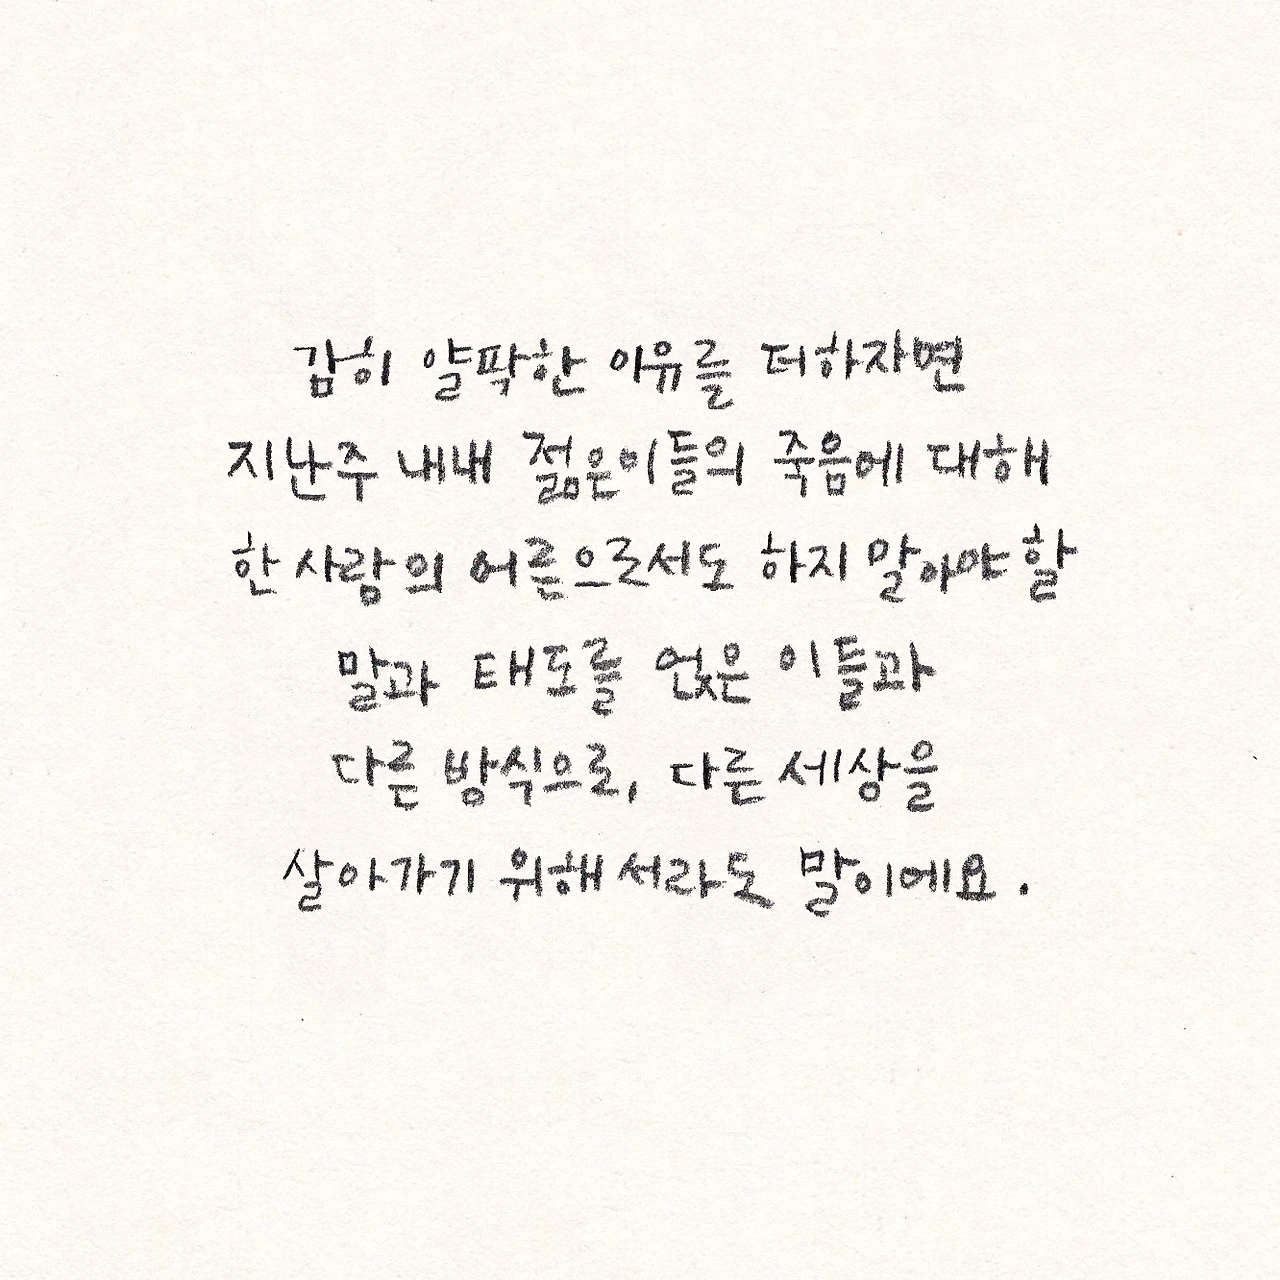 감히 얄팍한 이유를 더하자면
지난주 내내 젊은이들의 죽음에 대해
한 사람의 어른으로서도 하지 말아야 할
말과 태도를 얹은 이들과
다른 방식으로, 다른 세상을
살아가기 위해서라도 말이에요.